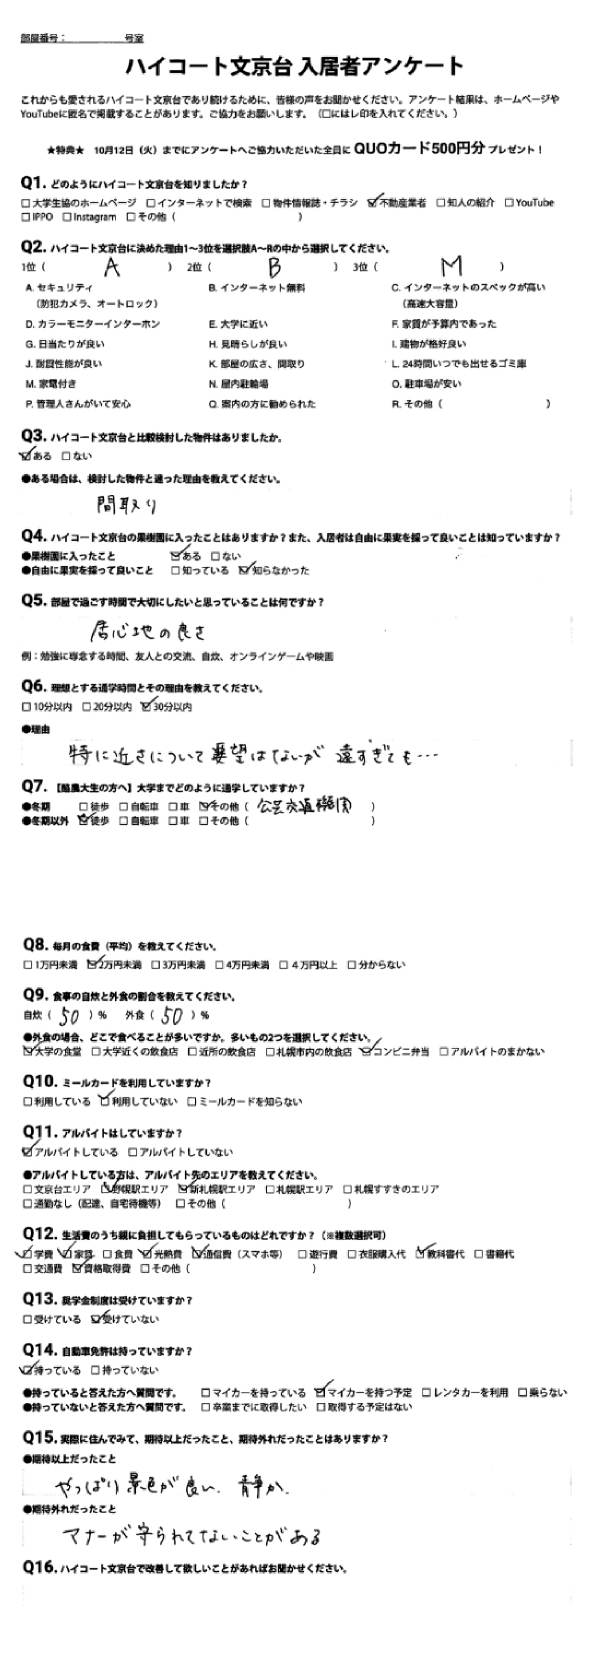 部屋番号：　　　　　号室
ハイコート文京台 入居者アンケート
これからも愛されるハイコート文京台であり続けるために、皆様の声をお聞かせください。アンケート結果は、ホームページや
YouTubeに匿名で掲載することがあります。ご協力をお願いします。（□にはレ印を入れてください。）
★特典★　10月12日（火）までにアンケートへご協力いただいた全員に QUOカード500円分 プレゼント！
Q1. どのようにハイコート文京台を知りましたか？
□大学生協のホームページ　□インターネットで検索　□物件情報誌・チラシ　☑不動産業者　□知人の紹介　□YouTube
□IPPO　□Instagram　□その他（　　　　　　　）
Q2. ハイコート文京台に決めた理由1～3位を選択肢A～Rの中から選択してください。
1位（　A　）　2位（　B　）　3位（　M　）
A. セキュリティ　B. インターネット無料　C. インターネットのスペックが高い
（防犯カメラ、オートロック）　（高速大容量）
D. カラーモニターインターホン　E. 大学に近い　F. 家賃が予算内であった
G. 日当たりが良い　H. 見晴らしが良い　I. 建物が格好良い
J. 耐震性能が良い　K. 部屋の広さ、間取り　L. 24時間いつでも出せるゴミ庫
M. 家電付き　N. 屋内駐輪場　O. 駐車場が安い
P. 管理人さんがいて安心　Q. 案内の方に勧められた　R. その他（　　　　　　　）
Q3. ハイコート文京台と比較検討した物件はありましたか。
☑ある　□ない
●ある場合は、検討した物件と違った理由を教えてください。
間取り
Q4. ハイコート文京台の果樹園に入ったことはありますか？また、入居者は自由に果実を採って良いことは知っていますか？
●果樹園に入ったこと　☑ある　□ない
●自由に果実を採って良いこと　□知っている　☑知らなかった
Q5. 部屋で過ごす時間で大切にしたいと思っていることは何ですか？
居心地の良さ
例：勉強に専念する時間、友人との交流、自炊、オンラインゲームや映画
Q6. 理想とする通学時間とその理由を教えてください。
□10分以内　□20分以内　☑30分以内
●理由
特に近さについて要望はないが 遠すぎても…
Q7. 【酪農大生の方へ】大学までどのように通学していますか？
●冬期　□徒歩　□自転車　□車　☑その他（　公共交通機関　）
●冬期以外　☑徒歩　□自転車　□車　□その他（　　　　　　　）
Q8. 毎月の食費（平均）を教えてください。
□1万円未満　☑2万円未満　□3万円未満　□4万円未満　□４万円以上　□分からない
Q9. 食事の自炊と外食の割合を教えてください。
自炊（　50　）％　外食（　50　）％
●外食の場合、どこで食べることが多いですか。多いもの2つを選択してください。
☑大学の食堂　□大学近くの飲食店　□近所の飲食店　□札幌市内の飲食店　☑コンビニ弁当　□アルバイトのまかない
Q10. ミールカードを利用していますか？
□利用している　☑利用していない　□ミールカードを知らない
Q11. アルバイトはしていますか？
☑アルバイトしている　□アルバイトしていない
●アルバイトしている方は、アルバイト先のエリアを教えてください。
□文京台エリア　☑野幌駅エリア　☑新札幌駅エリア　□札幌駅エリア　□札幌すすきのエリア
□通勤なし（配達、自宅待機等）　□その他（　　　　　　　）
Q12. 生活費のうち親に負担してもらっているものはどれですか？（※複数選択可）
☑学費　☑家賃　□食費　☑光熱費　☑通信費（スマホ等）　□遊行費　□衣服購入代　☑教科書代　□書籍代
□交通費　☑資格取得費　□その他（　　　　　　　）
Q13. 奨学金制度は受けていますか？
□受けている　☑受けていない
Q14. 自動車免許は持っていますか？
☑持っている　□持っていない
●持っていると答えた方へ質問です。　□マイカーを持っている　☑マイカーを持つ予定　□レンタカーを利用　□乗らない
●持っていないと答えた方へ質問です。　□卒業までに取得したい　□取得する予定はない
Q15. 実際に住んでみて、期待以上だったこと、期待外れだったことはありますか？
●期待以上だったこと
やっぱり景色が良い. 静か.
●期待外れだったこと
マナーが守られてないことがある
Q16. ハイコート文京台で改善して欲しいことがあればお聞かせください。